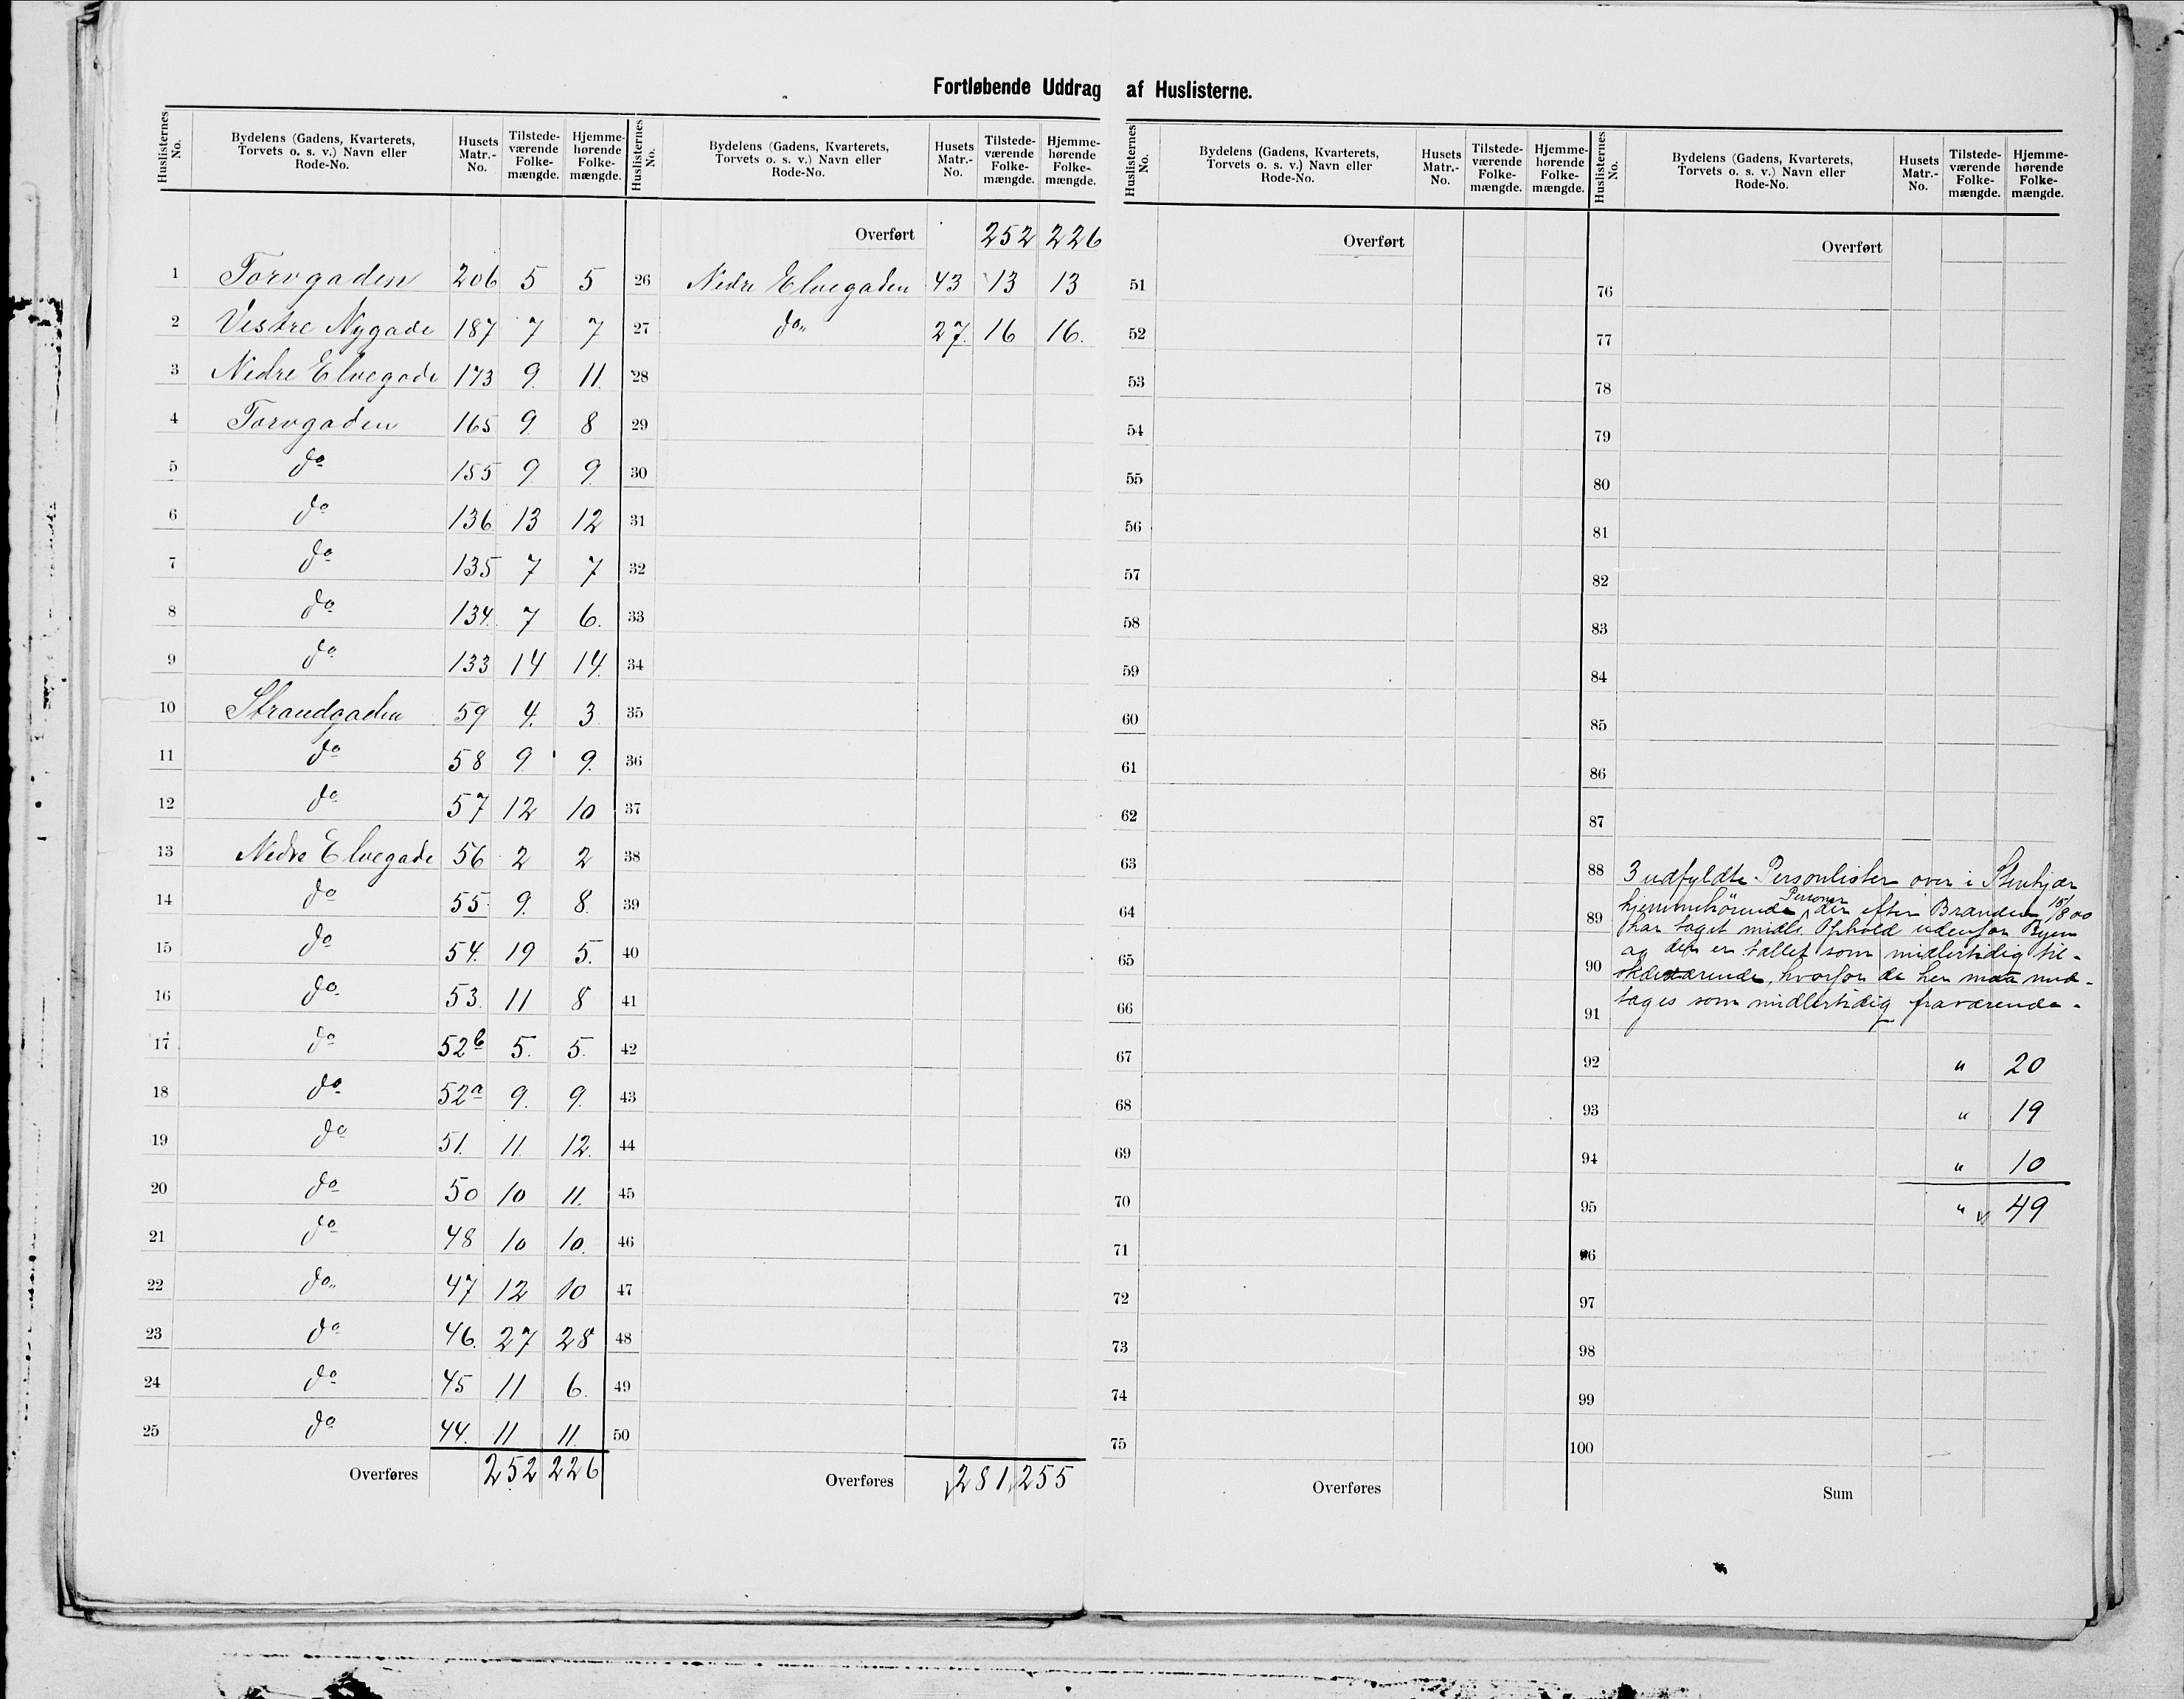 Fortløbende Uddrag af Huslisterne.
Huslisternes No. Bydelens (Gadens, Kvarterets, Torvets o. s. v.) Navn eller Rode-No. Husets Matr.-No. Tilstedeværende Folkemængde. Hjemmehørende Folkemængde.
1 Torvgaden 206 5 5
2 Vestre Nygade 187 7 7
3 Nedre Elvegade 173 9. 11.
4 Torvgaden 165 9. 8
5 do 155 9. 9.
6 do 136. 13 12
7 do 135 7 7
8 do 134. 7 6.
9 do 133 14 14.
10 Strandgaden 59 4. 3.
11 do 58 9. 9.
12 do 57 12 10
13 Nedre Elvegade 56 2 2
14 do 55 9. 8.
15 do 54. 19 5.
16 do 53. 11 8
17 do 52b 5. 5.
18 do 52a 9. 9.
19 do 51. 11. 12.
20 do 50 10 11.
21 do 48 10 10.
22 do 47 12 10
23 do 46. 27 28
24 do 45 11 6.
25 do 44. 11 11.
Overføres 252 226
Huslisternes No. Bydelens (Gadens, Kvarterets, Torvets o. s. v.) Navn eller Rode-No. Husets Matr.-No. Tilstedeværende Folkemængde. Hjemmehørende Folkemængde.
Overført 252 226
26 Nedre Elvegaden 43 13 13
27 do 27. 16 16.
28
29
30
31
32
33
34
35
36
37
38
39
40
41
42
43
44
45
46
47
48
49
50
Overføres 281 255
Huslisternes No. Bydelens (Gadens, Kvarterets, Torvets o. s. v.) Navn eller Rode-No. Husets Matr.-No. Tilstedeværende Folkemængde. Hjemmehørende Folkemængde.
Overført
51
52
53
54
55
56
57
58
59
60
61
62
63
64
65
66
67
68
69
70
71
72
73
74
75
Overføres
Huslisternes No. Bydelens (Gadens, Kvarterets, Torvets o. s. v.) Navn eller Rode-No. Husets Matr.-No. Tilstedeværende Folkemængde. Hjemmehørende Folkemængde.
Overført
76
77
78
79
80
81
82
83
84
85
86
87
88 3 udfyldte Personlister over i Stenkjær
89 hjemmehörende Personer der efter Branden 15/8 00
har taget midl. Ophold udenfor Byen
og der er tallet som midlertidig til-
90 stedeværende, hvorfor de her maa med-
91 tages som midlertidig fraværende.
92 " 20
93 " 19
94 " 10
95 " 49
96
97
98
99
100
Sum